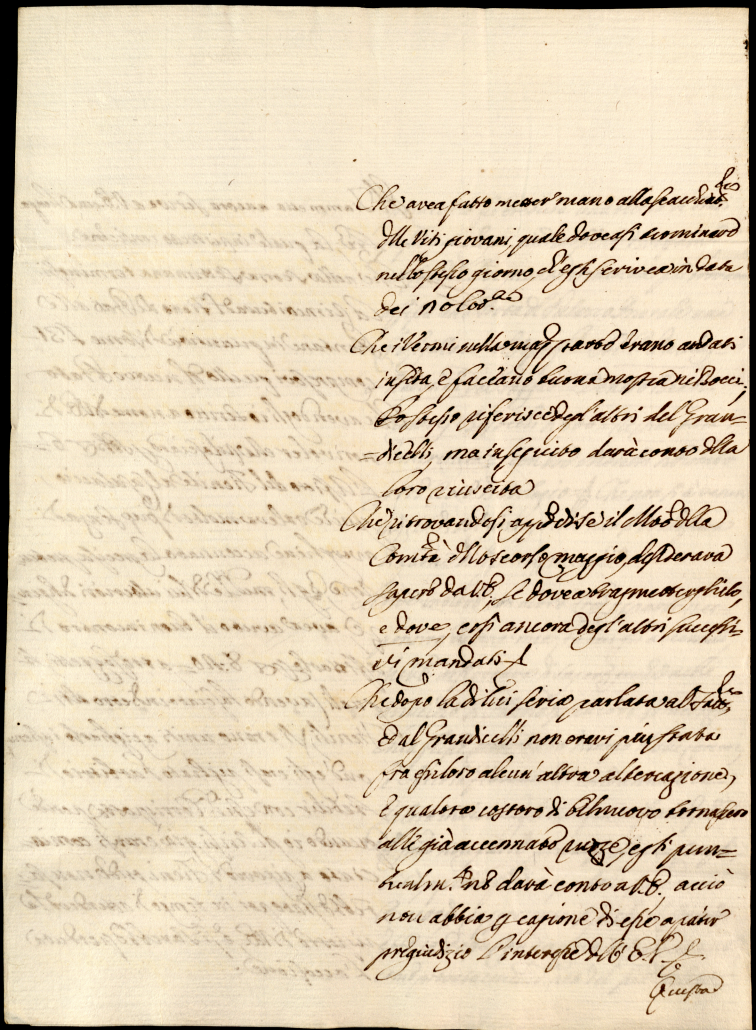 Che avea fatto metter mano alla
delle Viti giovani, quale doveasi terminare
nello stesso giorno ch'egli scrivea in data
dei
Che i Vermi nella erano andati
in seta, e faceano buona mostra ne' Bocci;
Lo stesso riferisce degl'altri del Gran=
=dicelli, ma in seguito darà conto della
loro riuscita
Che ritrovandosi il della
dello scorso maggio, desiderava
sapere da V.E., se dovea trasmetterglielo,
e dove, così ancora degl'altri sucessi=
vi mandati
Che dopo la di lui seria parlata al
e dal Grandicelli non eravi più stata
fra essi loro alcun'altra altercazione,
E qualora costoro di bel nuovo tornassero
alle già accennate risse, egli pun=
tualm.te ne darà conto a V.E. acciò
non abbia cagione di esse a patir
pregiudizio l'interesse dell'E.V.
Questa